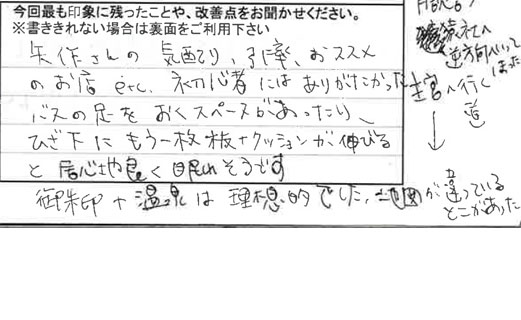 今回最も印象に残ったことや、改善点をお聞かせください。
※書ききれない場合は裏面をご利用下さい
矢作さんの気配り、引率、おススメ
のお店 etc. 初心者にはありがたかった
バスの足をおくスペースがあったり、
ひざ下にもう一枚板+クッションが伸びる
と居心地良く眠れそうです
御朱印+温泉は理想的でした。地図が違っている
とこがあった
逆方向へいって
しまった
へ行く
道
↓